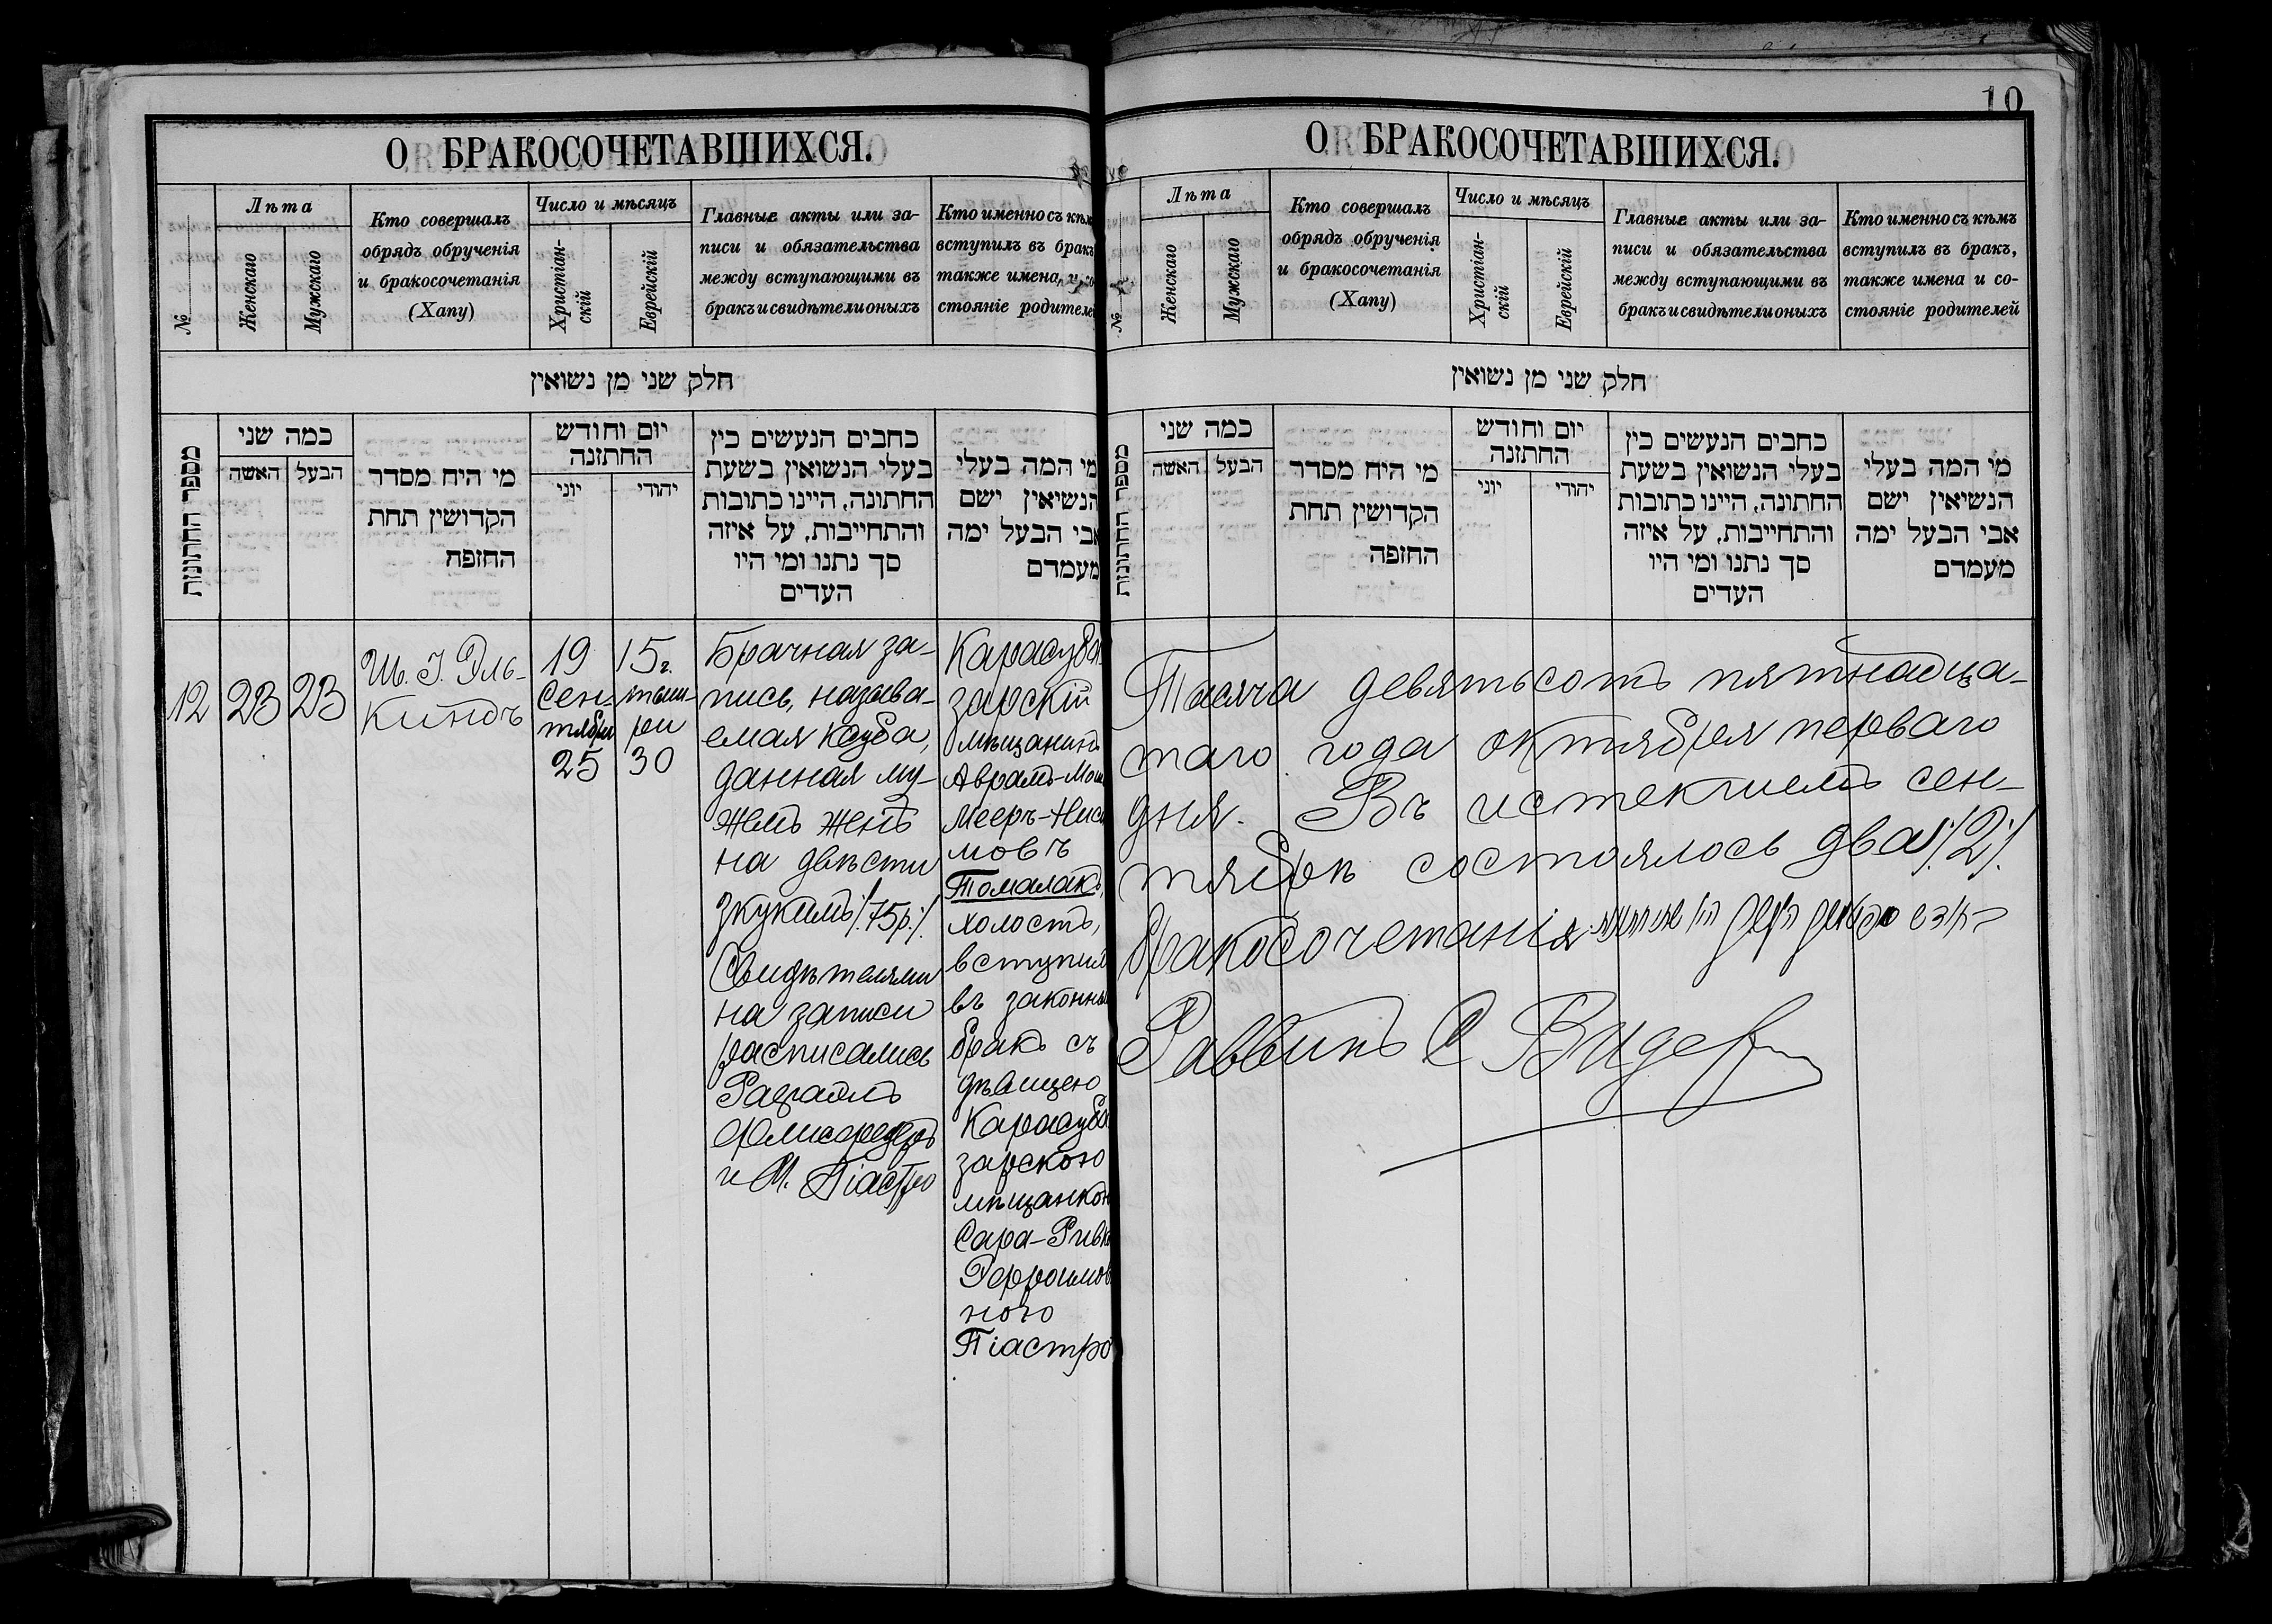 10
О БРАКОСОЧЕТАВШИХСЯ.
№
Лѣта
Женскаго
Мужскаго
Кто совершалъ
обрядъ обрученія
и бракосочетанія
(Хапу)
Число и мѣсяцъ
Христіан-
скій
Еврейскій
Главные акты или за-
писи и обязательства
между вступающими въ
бракъ и свидѣтели оныхъ
Кто именно съ кѣм
вступилъ въ бракъ
также имена, и со
стояніе родителе
חלק שני מן נשואין
מספר החתונות
כמה שני
האשה
הבעל
מי היח מסדר
הקדושין תחת
החופה
יום וחודש
החתונה
יוני
יהודי
כתבים הנעשים בין
בעלי הנשואין בשעת
החתונה, היינו כתובות
והתחייבות, על איזה
סך נתנו ומי היו
העדים
מי המה בעלי
הנשיאין ישם
אבי הבעל ימה
מעמדם
12
23
23
Ш. І. Эль-
киндъ
19
Сен-
тября
25
15г.
тыш-
ри
30
Брачная за-
пись, называ-
емая ксуба,
данная му-
жемъ женѣ
на двѣсти
зкукимъ /:75р:/
Свидѣтелями
на записи
расписались
Рафаилъ
и М. Піастро
Карасуба
зарскій
мѣщанинъ
Аврамъ-Мош
Мееръ-Нис
мовъ
Томалакъ,
холостъ,
вступил
въ законны
бракъ съ
дѣвицею
Карасуба
зарскою
мѣщанкою
Сара-Ривк
Рефоимов
ною
Піастро
О БРАКОСОЧЕТАВШИХСЯ.
№
Лѣта
Женскаго
Мужскаго
Кто совершалъ
обрядъ обрученія
и бракосочетанія
(Хапу)
Число и мѣсяцъ
Христіан-
скій
Еврейскій
Главные акты или за-
писи и обязательства
между вступающими въ
бракъ и свидѣтели оныхъ
Кто именно съ кѣмъ
вступилъ въ бракъ,
также имена и со-
стояніе родителей
חלק שני מן נשואין
מספר החתונות
כמה שני
האשה
הבעל
מי היח מסדר
הקדושין תחת
החופה
יום וחודש
החתונה
יוני
יהודי
כתבים הנעשים בין
בעלי הנשואין בשעת
החתונה, היינו כתובות
והתחייבות, על איזה
סך נתנו ומי היו
העדים
מי המה בעלי
הנשיאין ישם
אבי הבעל ימה
מעמדם
Тысяча девятьсотъ пятнадца-
таго года октября перваго
дня. Въ истекшемъ сен-
тябрѣ состоялось два /:2:/
бракосочетанія
Раввинъ С Видер